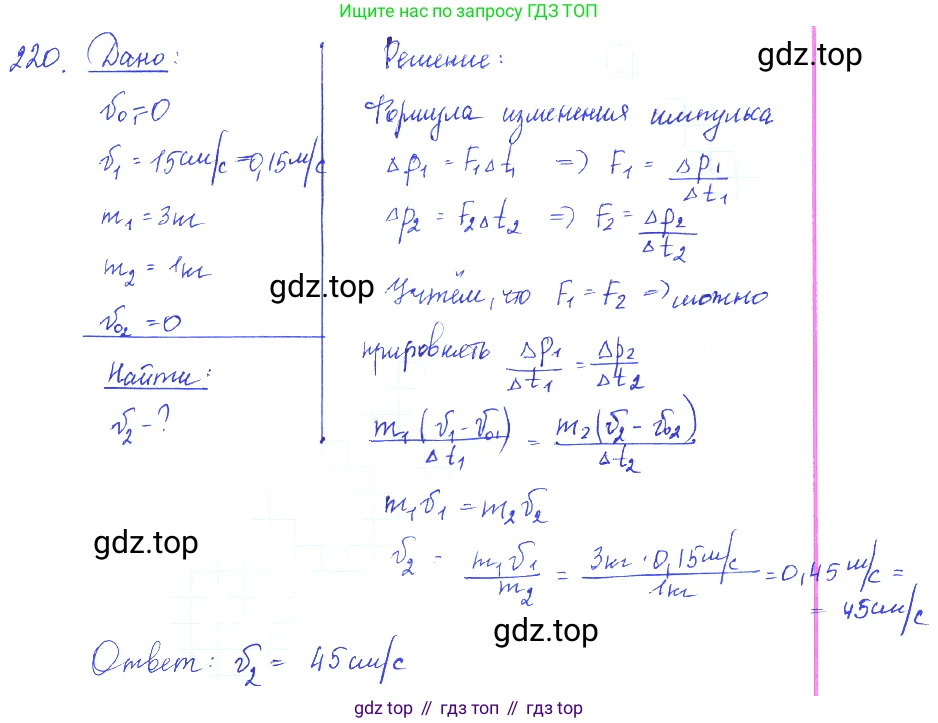 Ищите нас по запросу ГДЗ ТОП
220. Дано:
v₀₁=0
v₁ = 15см/с =0,15м/с
m₁ = 3кг
m₂ = 1кг
v₀₂ =0
Найти:
v₂ - ?
gdz.top
Решение:
gdz.top
Формула изменения импулька
Δp₁ = F₁Δt₁ => F₁ = Δp₁/Δt₁
Δp₂ = F₂Δt₂ => F₂ = Δp₂/Δt₂
Учтём, что F₁ = F₂ => можно
прировнять Δp₁/Δt₁ = Δp₂/Δt₂
m₁(v₁-v₀₁)/Δt₁ = m₂(v₂-v₀₂)/Δt₂
m₁v₁ = m₂v₂
v₂ = m₁v₁/m₂ = 3кг·0,15м/с/1кг =0,45м/с =
= 45см/с
gdz.top
gdz.top
Ответ: v₂ = 45см/с
gdz top // гдз топ // gdz.top